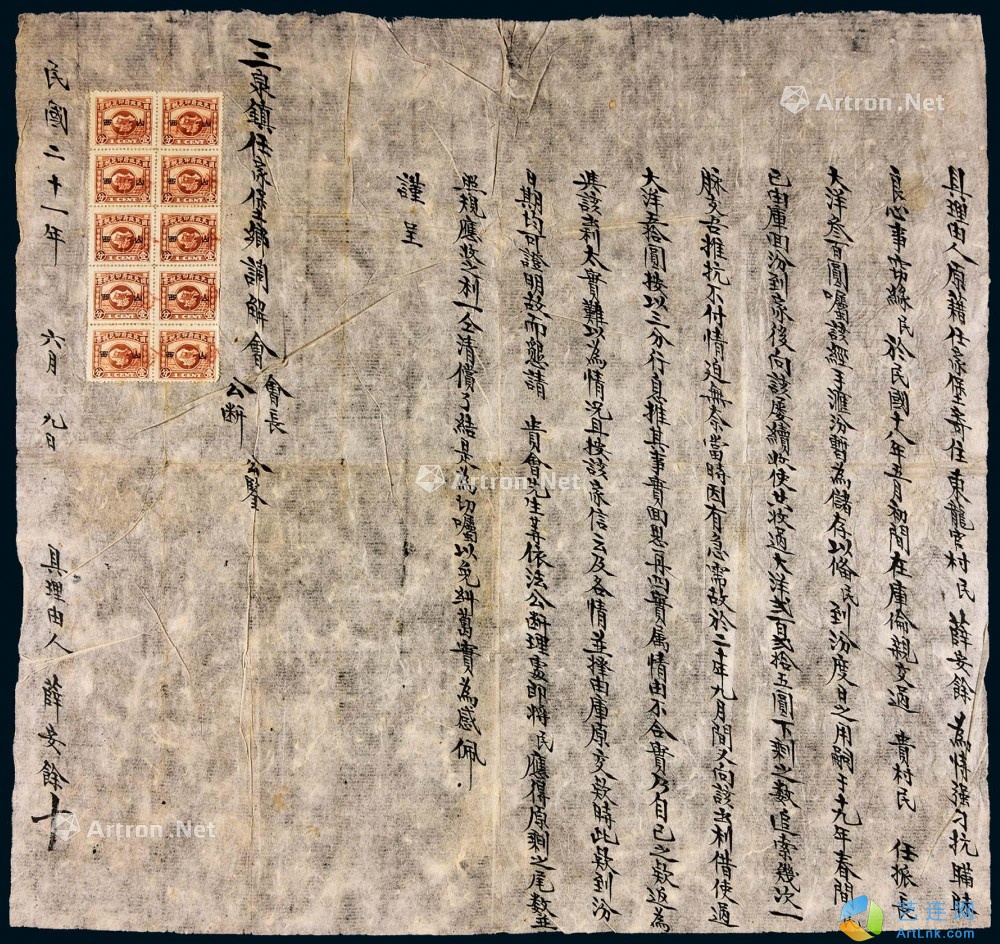 具理由人原籍任家堡寄住東龍官村民 薛安餘 為恃強刁抗瞞昧
良心事 緣民於民國十八年五月初間在庫倫親交過 貴村民 任振長
大洋叁百圓囑該經手滙汾暫為儲存以備民到汾度日之用嗣于十九年春間
已由庫回汾到家後向該屢續收使共收過大洋弍百弍拾五圓下剩之數追索幾次一
脉支吾推抗不付情迫無奈當時因有急需故於二十年九月間又向該出利借使過
大洋五拾圓按以三分行息推其事實回想再四實屬情由不合實乃自己之欵返為
與該出利太實難以為情況且按該家信云及各情並擇由庫原交欵時此欵到汾
日期均可證明故而懇請 貴會先生等依法公断理處即將民應得原剩之尾数並
照規應收之利一仝清償了結是為切囑以免糾葛實為感佩
謹呈
三泉鎮任家堡鄉調解會 會長 公断 公鑒
民國二十一年 六月 九日 具理由人 薛安餘 十
山西
1 CENT
Artron.Net
Artron.Net
Artron.Net
艺连网
ArtLnk.com